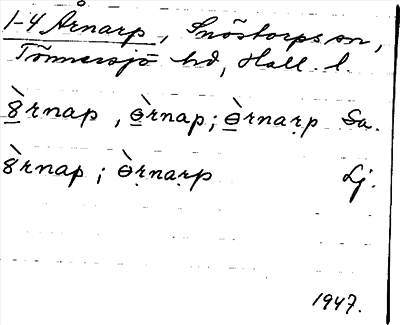 1-4 Årnarp, Snöstorps sn,
Tönnersjö hd, Hall. l.
8̲̀rnap, ɵ̲̀rnap; ɵ̲̀rnaṛp Sa.
8̀rnap; ɵ̀ṛnaṛp Lj.
1947.